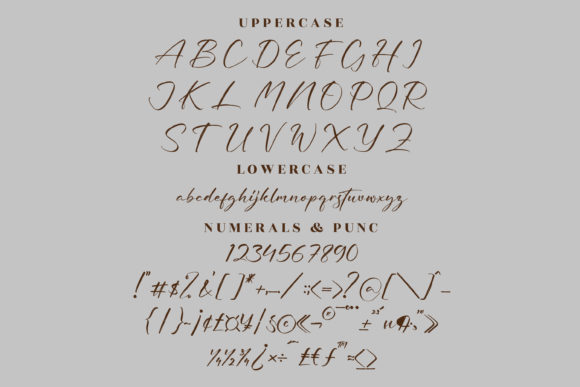 UPPERCASE
A B C D E F G H I
J K L M N O P Q R
S T U V W X Y Z
LOWERCASE
abcdefghijklmnopqrstuvwxyz
NUMERALS & PUNC
1234567890
!"#$%&'[]*+,-./:;<=>?@[\]^_
{|}~¡¢£¤¥¦§©«¬®¯°±²³´µ¶·¸¹»
¼½¾¿×÷